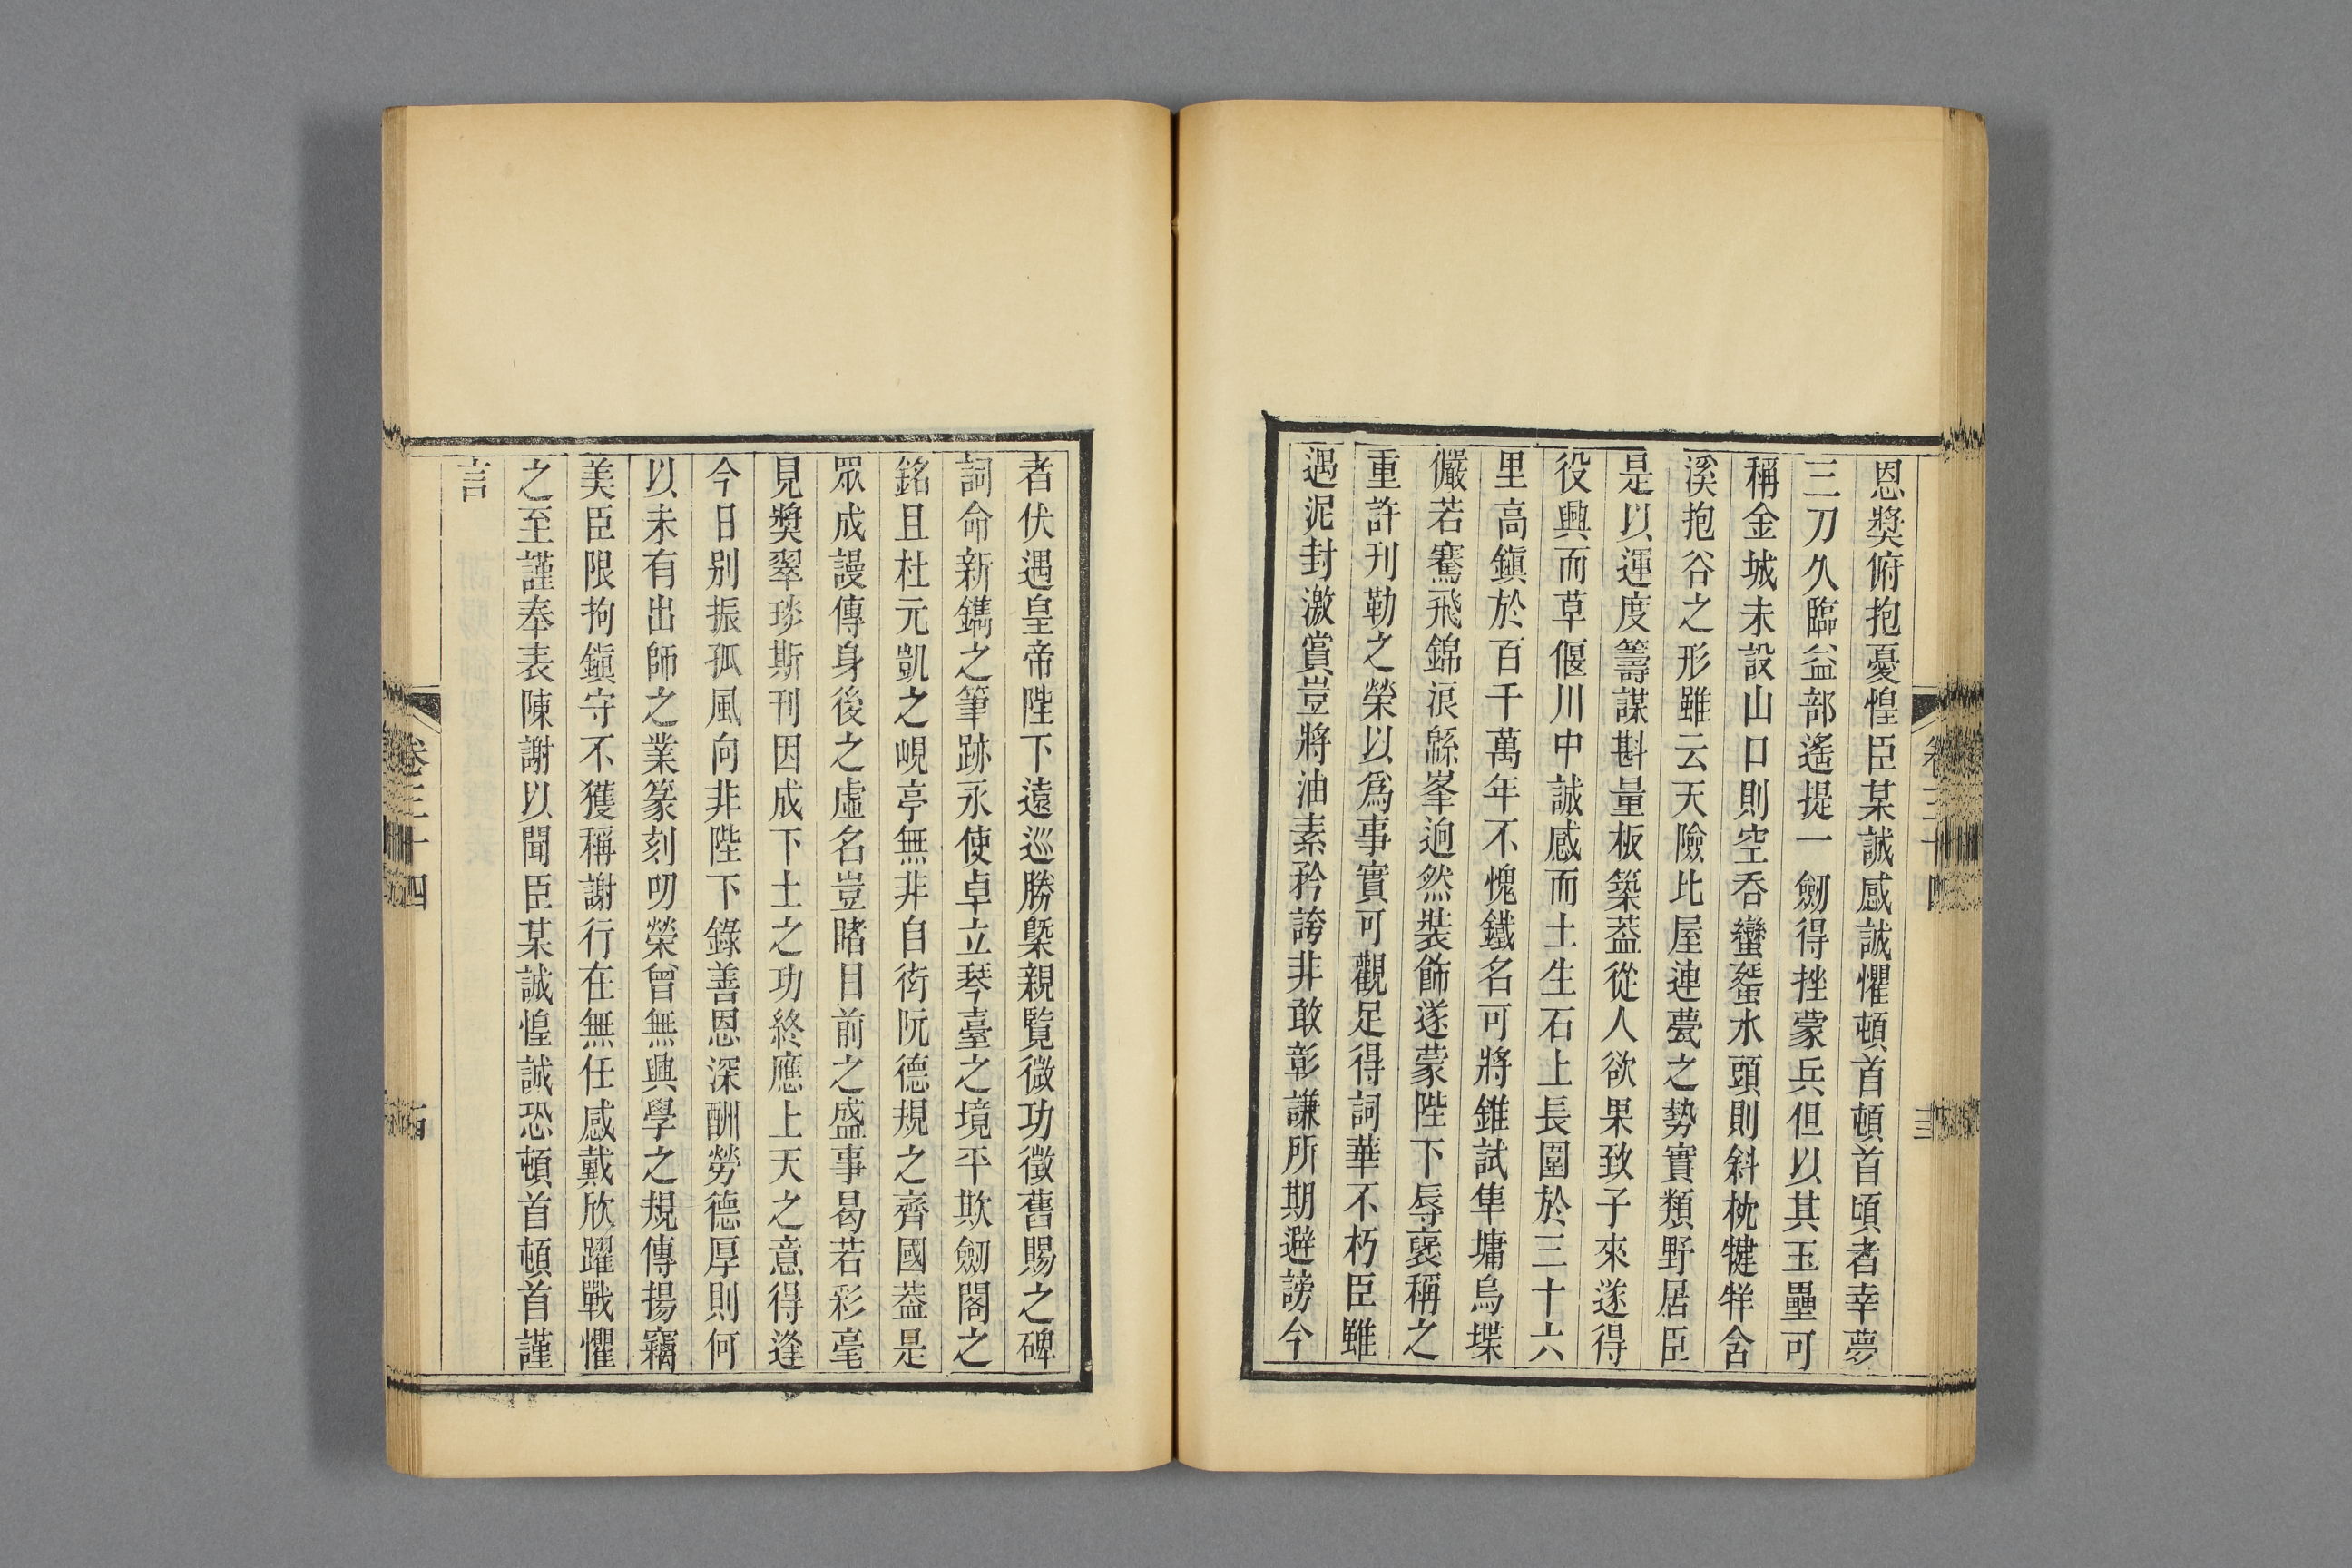 恩獎俯抱憂惶臣某誠感誠懼頓首頓首頃者幸夢
三刀久臨益部遙提一劒得挫蒙兵但以其玉壘可
稱金城未設山口則空吞蠻蜑水頭則斜枕犍牂含
溪抱谷之形雖云天險比屋連甍之勢實類野居臣
是以運度籌謀斟量板築葢從人欲果致子來遂得
役興而草偃川中誠感而土生石上長圍於三十六
里高鎭於百千萬年不愧鐵名可將錐試隼墉烏堞
儼若騫飛錦浪緜峯逈然裝飾遂蒙陛下辱襃稱之
重許刊勒之榮以爲事實可觀足得詞華不朽臣雖
遇泥封激賞豈將油素矜誇非敢彰謙所期避謗今
卷三十四
三
者伏遇皇帝陛下遠巡勝槩親覽微功徵舊賜之碑
詞命新鐫之筆跡永使卓立琴臺之境平欺劒閣之
銘且杜元凱之峴亭無非自衒阮德規之齊國葢是
眾成謾傳身後之虛名豈睹目前之盛事曷若彩毫
見獎翠琰斯刊因成下土之功終應上天之意得逢
今日别振孤風向非陛下錄善恩深酬勞德厚則何
以未有出師之業篆刻叨榮曾無興學之規傳揚竊
美臣限拘鎭守不獲稱謝行在無任感戴欣躍戰懼
之至謹奉表陳謝以聞臣某誠惶誠恐頓首頓首謹
言
卷三十四